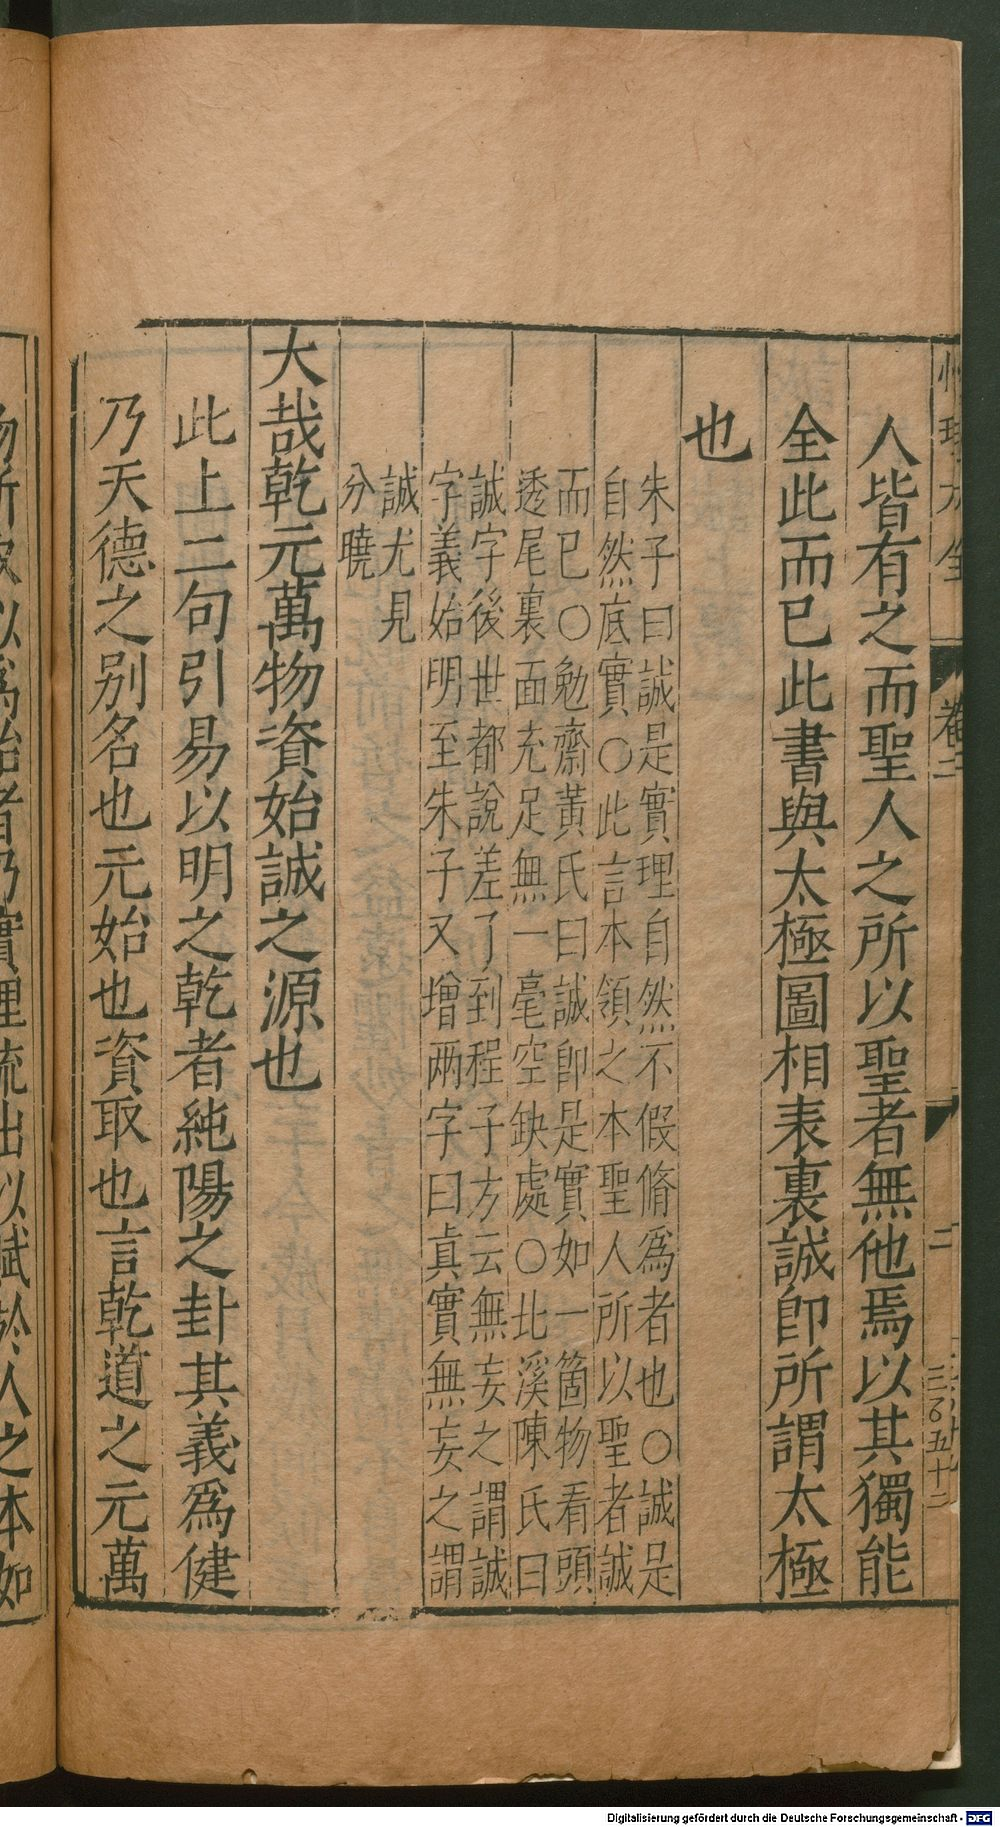 人皆有之而聖人之所以聖者無他焉以其獨能
全此而已此書與太極圖相表裏誠卽所謂太極
也
朱子曰誠是實理自然不假脩爲者也○誠是
自然底實○此言本領之本聖人所以聖者誠
而已○勉齋黃氏曰誠卽是實如一箇物看頭
透尾裏面充足無一毫空缺處○北溪陳氏曰
誠字後世都說差了到程子方云無妄之謂誠
字義始明至朱子又增两字曰眞實無妄之謂
誠尤見
分曉
大哉乾元萬物資始誠之源也
此上二句引易以明之乾者純陽之卦其義爲健
乃天德之别名也元始也資取也言乾道之元萬
物所取以爲始者乃實理流出以賦於人之本如
卷二
二
Digitalisierung gefördert durch die Deutsche Forschungsgemeinschaft - DFG